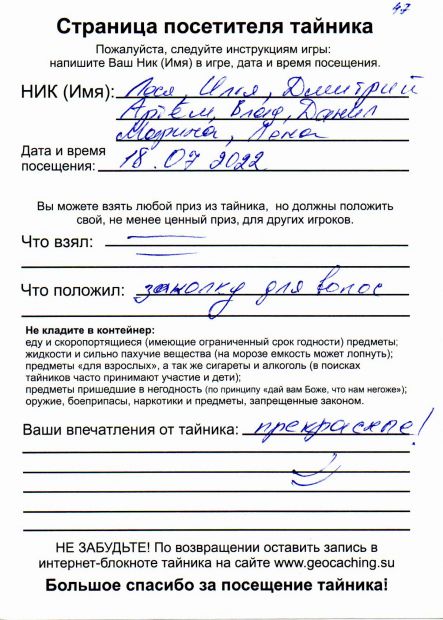 47
Страница посетителя тайника
Пожалуйста, следуйте инструкциям игры:
напишите Ваш Ник (Имя) в игре, дата и время посещения.
НИК (Имя): Лося, Илья, Дмитрий
Артём, Влад, Данил
Марина, Лена
Дата и время
посещения: 18.07.2022
Вы можете взять любой приз из тайника, но должны положить
свой, не менее ценный приз, для других игроков.
Что взял:
Что положил: заколку для волос
Не кладите в контейнер:
еду и скоропортящиеся (имеющие ограниченный срок годности) предметы;
жидкости и сильно пахучие вещества (на морозе емкость может лопнуть);
предметы «для взрослых», а так же сигареты и алкоголь (в поисках
тайников часто принимают участие и дети);
предметы пришедшие в негодность (по принципу «дай вам Боже, что нам негоже»);
оружие, боеприпасы, наркотики и предметы, запрещенные законом.
Ваши впечатления от тайника: прекрасные!
НЕ ЗАБУДЬТЕ! По возвращении оставить запись в
интернет-блокноте тайника на сайте www.geocaching.su
Большое спасибо за посещение тайника!